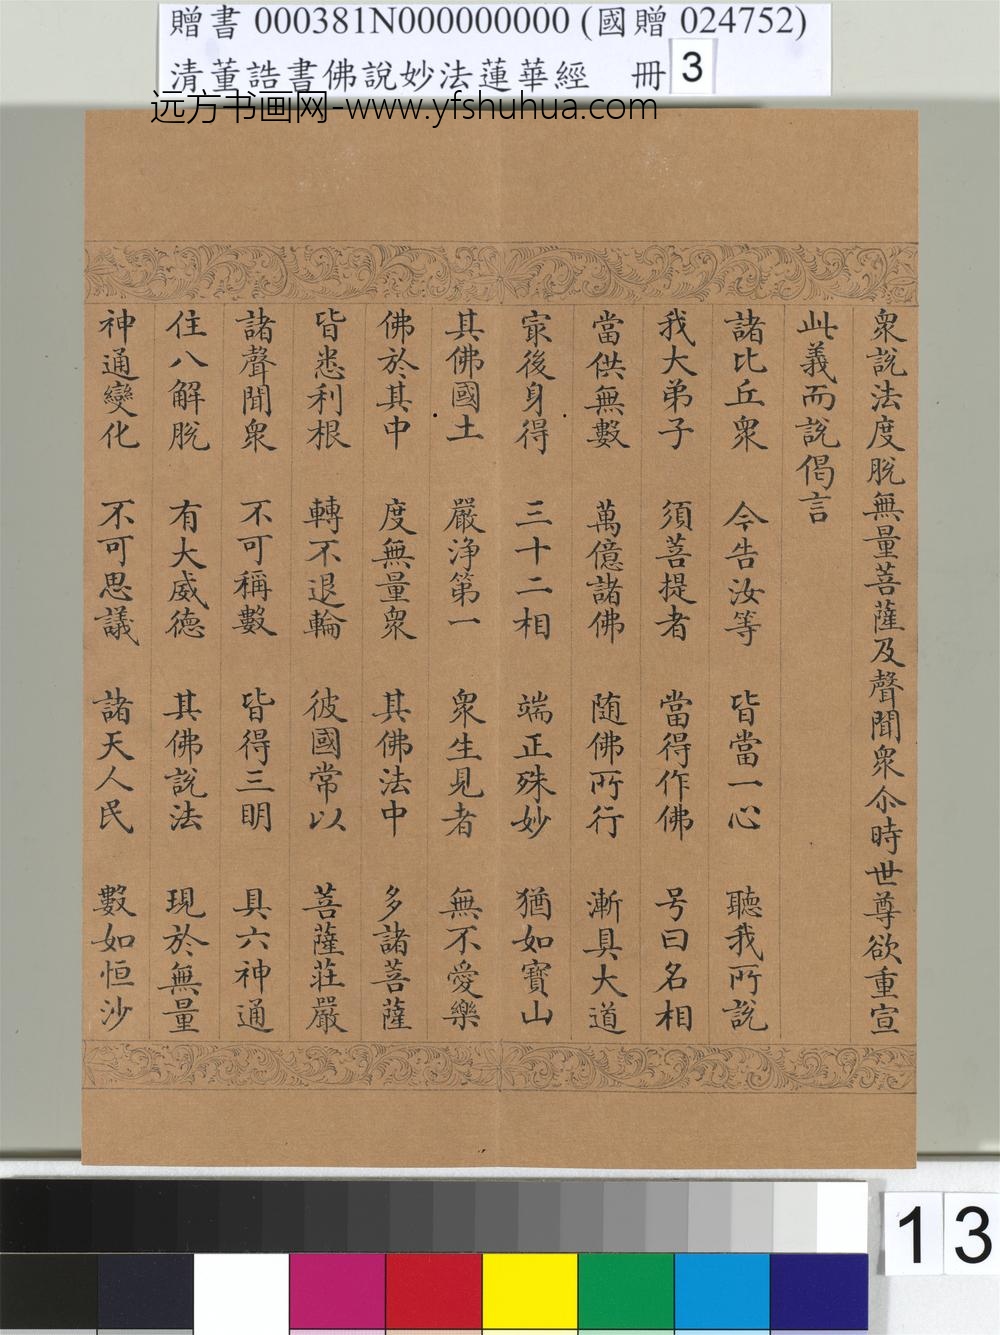 贈書 000381N000000000 (國贈 024752)
清董誥書佛說妙法蓮華經 冊 3
远方书画网-www.yfshuhua.com
衆說法度脫無量菩薩及聲聞衆尒時世尊欲重宣
此義而說偈言
諸比丘衆 今告汝等 皆當一心 聽我所說
我大弟子 須菩提者 當得作佛 号曰名相
當供無數 萬億諸佛 随佛所行 漸具大道
㝡後身得 三十二相 端正殊妙 猶如寶山
其佛國土 嚴淨第一 衆生見者 無不愛樂
佛於其中 度無量衆 其佛法中 多諸菩薩
皆悉利根 轉不退輪 彼國常以 菩薩莊嚴
諸聲聞衆 不可稱數 皆得三明 具六神通
住八解脫 有大威德 其佛說法 現於無量
神通變化 不可思議 諸天人民 數如恒沙
13